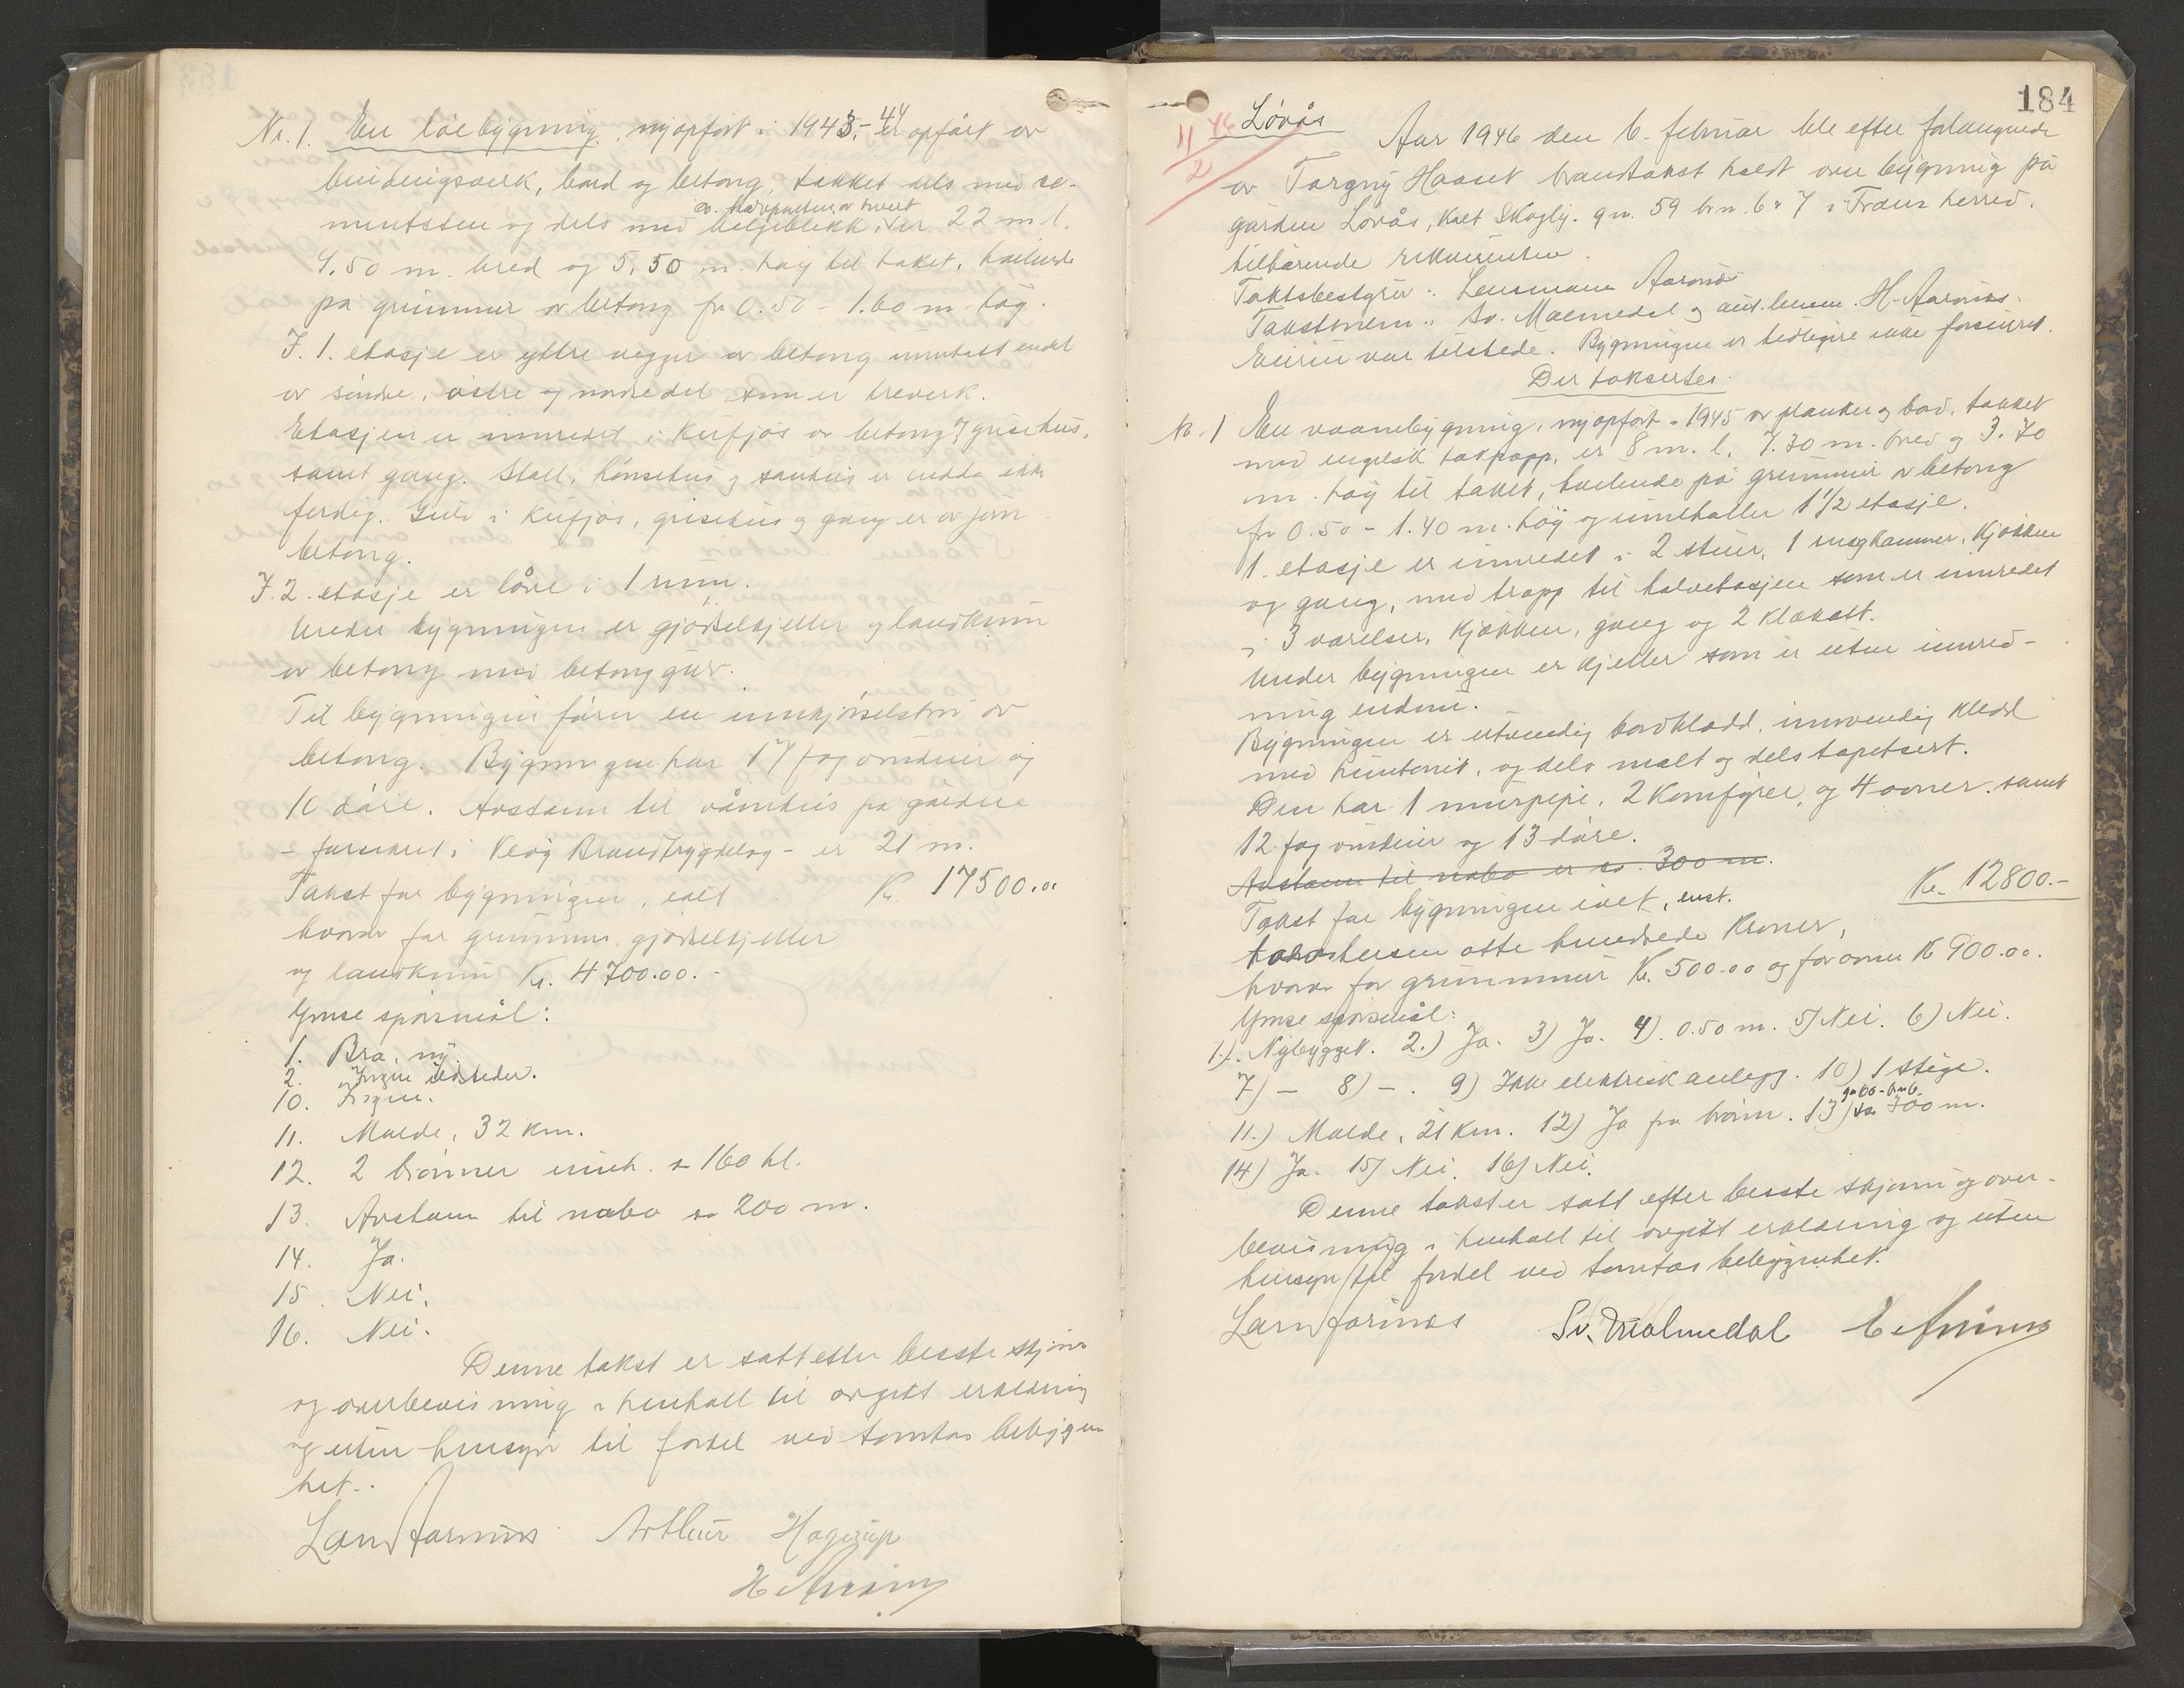 Nr. 1. En löebygning, nyopført i 1943-44 er opført av
bindingsverk, bord og betong, tekket dels med se-
mentsten og dels med bølgeblikk, er 22 m l.
9.50 m. bred og 5.50 m. høy til taket, hvilende
på grunnmur av betong fra 0.50 - 1.60 m. høg.
I. 1. etasje er yttre vegger av betong unntatt endel
av søndre, østre og nordre del som er treverk.
Etasjen er innredet i kufjøs av betong, grisehus,
samt gang. Stall, hønsehus og sauhus er endda ikke
ferdig. Gulv i kufjøs, grisehus og gang er av jern
betong.
I. 2. etasje er låve i 1 rum.
Under bygningen er gjødselkjeller og landkum
av betong med betonggulv.
Til bygningen fører en innkjørselsbru av
betong. Bygningen har 17 fag vinduer og
10 döre. Avstann til våmhus på gården
- forsikret i Veøy Brandtrygdelag - er 21 m.
Takst for bygningen, ialt Kr. 17500.00
hvorav for grunnmur, gjødselkjeller
og landkum Kr. 4700.00.-
Ymse spörsmål:
1. Bra, ny.
2. Ingen ildsteder.
10. Ingen.
11. Molde, 32 km.
12. 2 brönner inneh. ca 160 hl.
13. Avstann til nabo ca 200 m.
14. Ja.
15. Nei.
16. Nei.
Denne takst er satt etter besste skjönn
og overbevisning i henhall til avgitt erklæring
og uten hensyn til fordel ved tomtas bebygen
het..
Lars Aarönes Arthur Hagerup
H Aarönes
184
11/2 46
Løvås
Aar 1946 den 6. februar ble efter forlangende
av Torgny Haaset brandtakst holdt over bygning på
gården Lovås, kalt Skogly. gn. 59 bn. 6 & 7 i Fræna herred.
tilhørende rekvirenten.
Takstbestyrer: Lensmann Aarönes
Takstmenn: Sv. Malmedal og ass. lensm. H. Aarönes.
Eieren var tilstede. Bygningen er tidligere ikke forsikret.
Der taksertes.
Nr. 1 En vaanebygning, nyopført i 1945 av planker og bord, tekket
med engelsk takpapp, er 8 m. l, 7.30 m. bred og 3.70
m. høy til taket, hvilende på grunnmur av betong
fra 0.50 - 1.40 m. höy og inneholler 1 1/2 etasje.
1. etasje er innredet i 2 stuer, 1 sengkammer, kjökken
og gang, med trapp til halvetasjen som er innredet
i 3 værelser, kjøkken, gang og 2 klækott.
Under bygningen er kjeller som er uten innred-
ning endnu.
Bygningen er utvendig bordklædd, innvendig kledd
med huntonit, og dels malt og dels tapetsert.
Den har 1 murpipe, 2 komfyrer, og 4 ovner. samt
12 fag vinduer og 13 döre.
Avstann til nabo er ca. 300 m.
Takst for bygningen ialt, enst. Kr. 12800.-
tolvtusen otte hundrede kroner,
hvorav for grunnmur Kr. 500.00 og for ovner Kr 900.00.
Ymse spörsmål:
1.). Nybygget. 2.) Ja. 3) Ja. 4). 0.50 m. 5) Nei. 6) Nei.
7) - 8) -. 9) Ikke elektrisk anlegg. 10) 1 stige.
11.) Molde, 21 km. 12) Ja fra brönn. 13) ca 300 m.
14) Ja. 15) Nei. 16) Nei.
Denne takst er satt efter besste skjönn og over-
bevisning i henhall til avgitt erklæring og uten
hensyn til fordel ved tomtas bebygenhet.
Lars Aarönes Sv. Malmedal H Aarönes